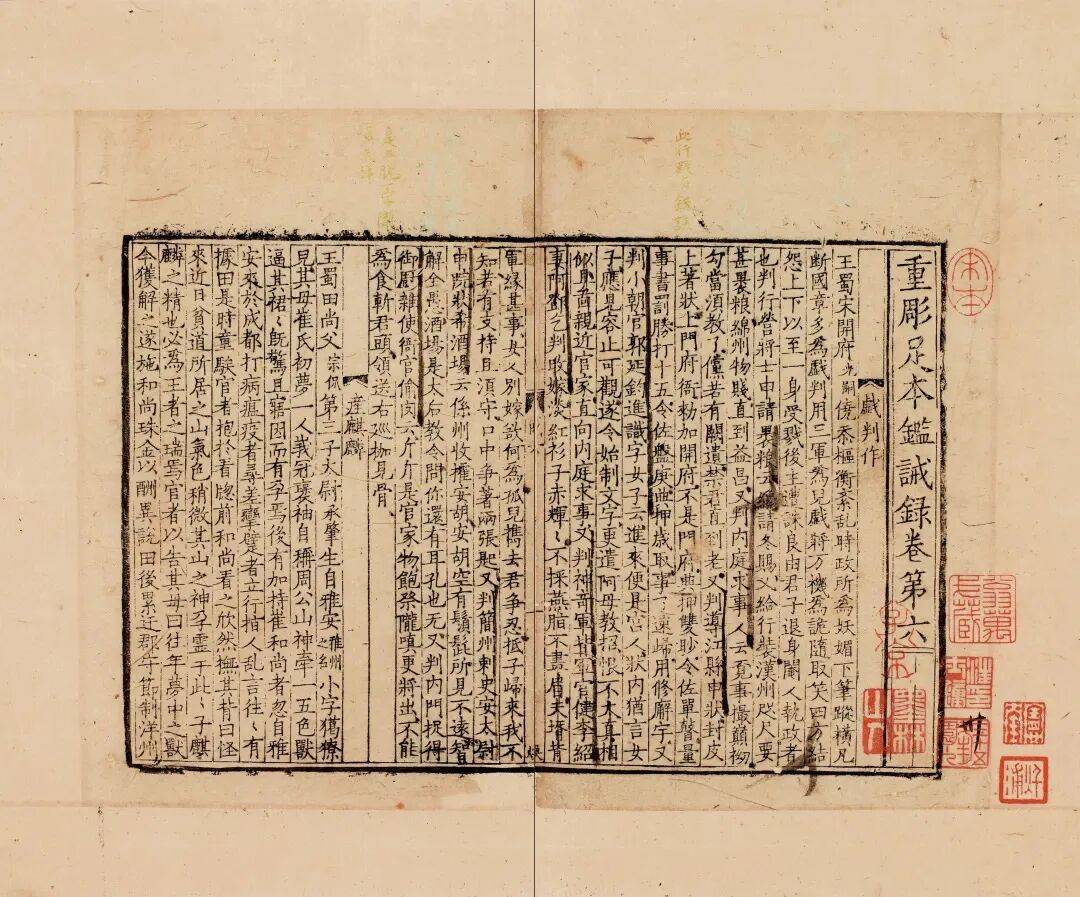 重彫足本鑑誡録卷第六
戯判作
王蜀宋開府光嗣僣忝樞衡紊乱時政所為妖媚下筆蹤橫凡
断國章多為戯判用三軍為兒戯將万機為詭隨取笑四方結
怨上下以至一身受戮後主遭誅良由君子退身閹人執政者
也判行營將士申請裹粮云纔請冬賜又給行装漢州咫尺要
甚裹粮綿州物賤直到益昌又判内庭求事人云覓事撮蘭拗
勾當須教了儻若有闕遺禁君直到老又判導江縣申状封皮
上著状上門府衙勑加開府不是門府典押雙眇令佐單瞽量
事書罰䏶打十五令佐盤庚典押歳取事了速歸用修廨宇又
判小朝官郭延鈞進識字女子云進來便是宮人状内猶言女
子應見容止可觀遂令始制文字更遣阿母教招恨不太真相
似且䭾親近官家直向内庭求事又判神奇軍背軍官健李紹
妻阿鄧乞判改嫁淡紅衫子赤輝〻不採燕脂不畫眉夫壻背
軍縁甚事女人別嫁欲何為孤兒携去君争忍抵子歸來我不
知若有支持且須守口中争著兩張匙又判簡州刺史安太尉
申蹟状希酒場云係州收㩁安胡安胡空有鬚髭所見不遠智
解全愚酒場是太后教令問你還有耳孔也无又判内門捉得
御厨雜使衙官偷肉云斤斤是官家物飽祭隴嗔更將出不能
為食斬君頭領送右廵枷見骨
産麒麟
王蜀田尚父宗侃第三子大尉承肇生自雅安雅州之小字獦獠
見其母崔氏初夢一人義冠褒袖自稱周公山神牽一五色獸
逼其裙〻既驚且寤因而有孕焉後有加持崔和尚者忽自雅
安來於成都打病瘧疫者尋差攣躄者立行揞人乱言往〻有
據田是時童騃官者抱於看牕前和尚看之欣然撫其背曰怪
來近日貧道所居之山氣色稍微其山之神孕霊于此〻子麒
麟之精也必為王者之瑞焉官者以告其母曰往年夢中之獸
今獲解之遂施和尚珠金以酬異説田後累迁郡牟節制洋州